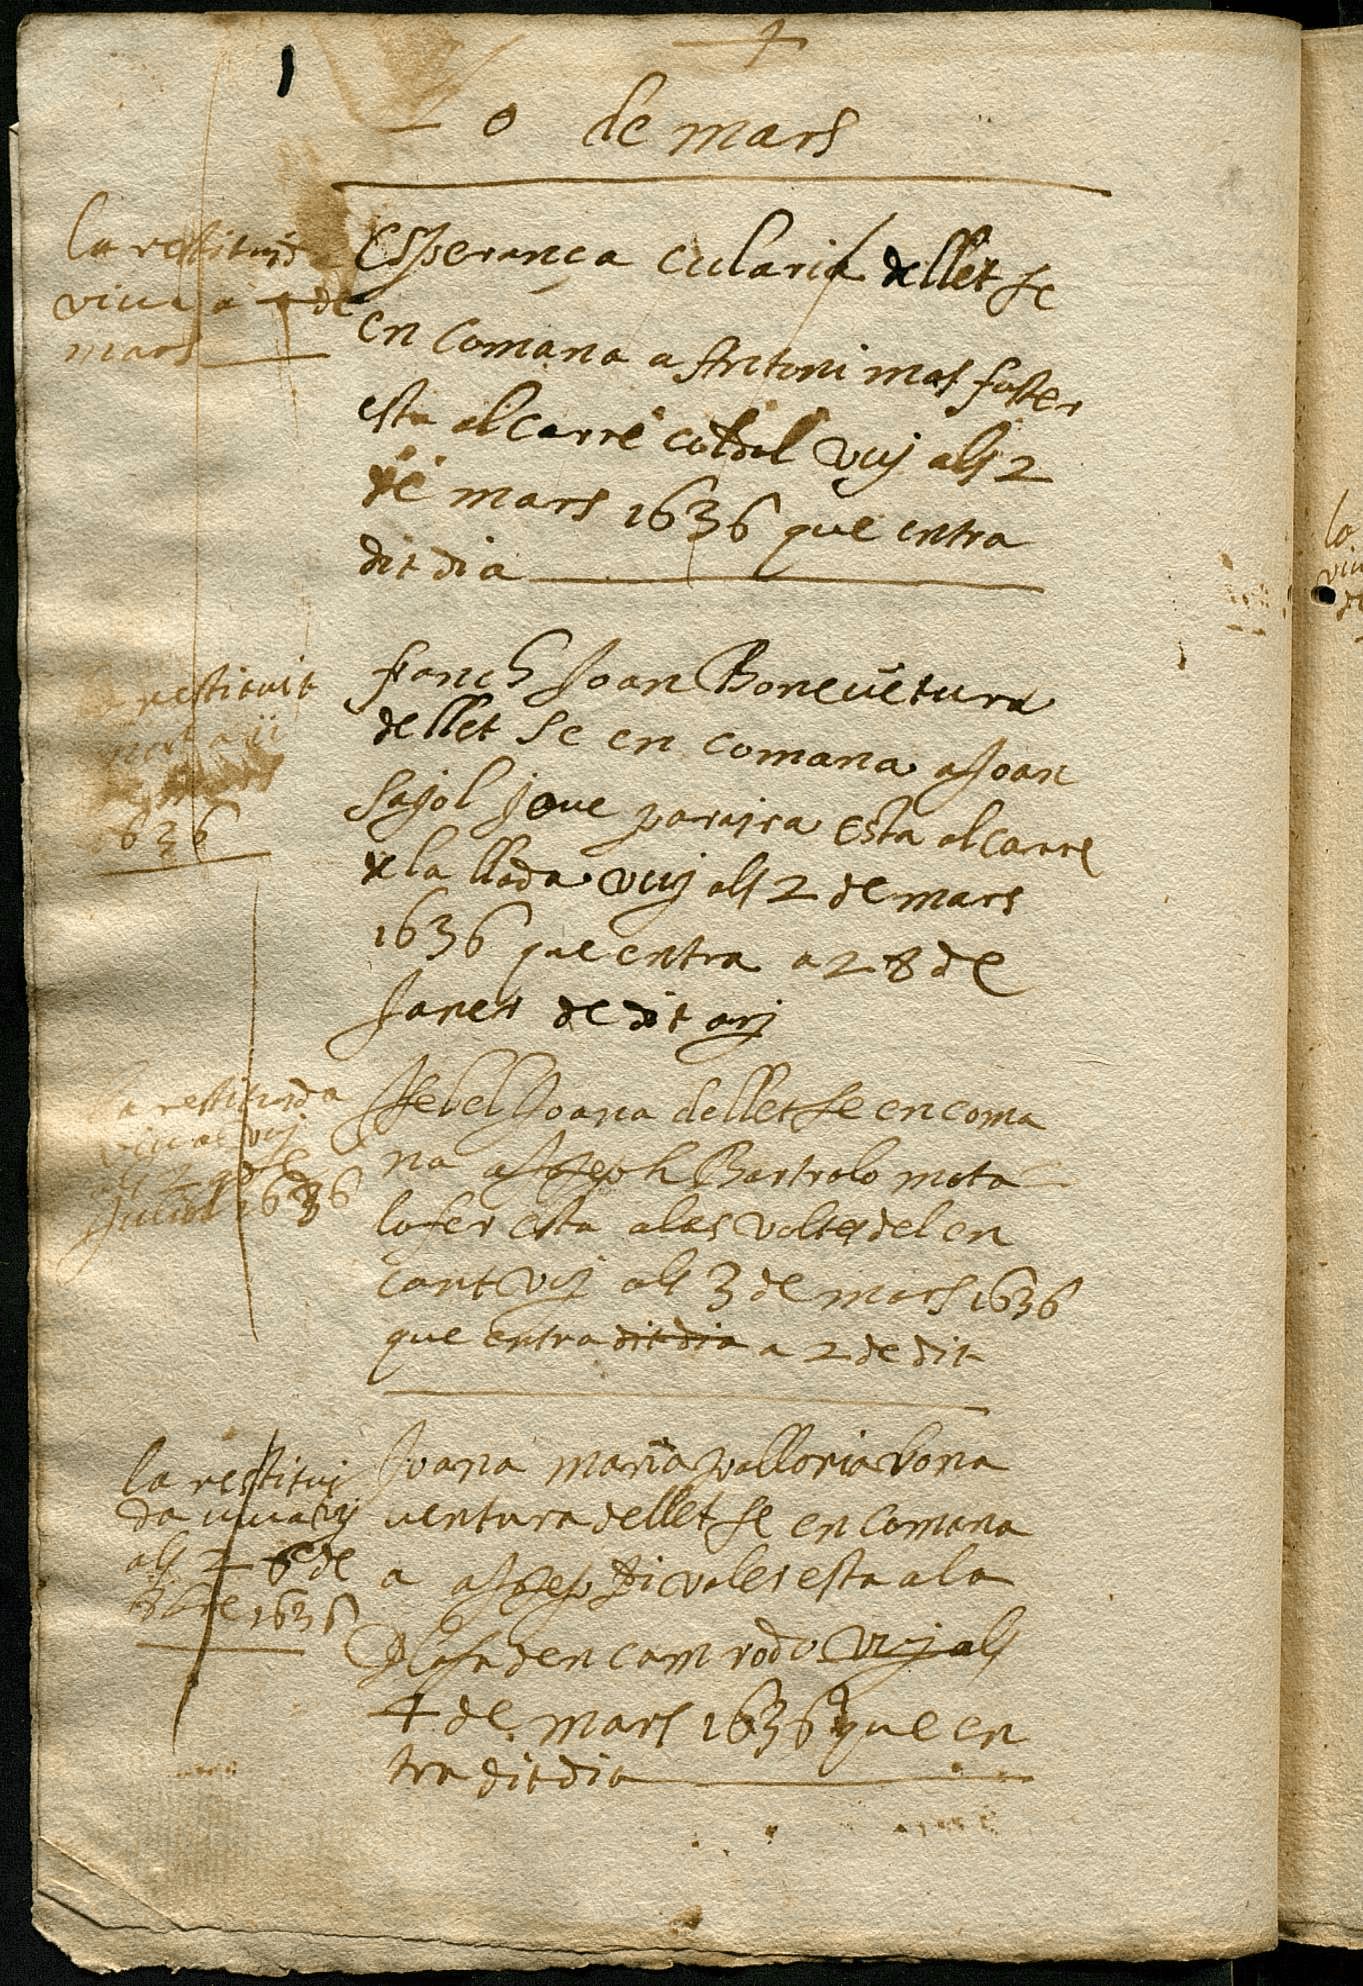 de mars
la restituida
viva a 4 de
mars
Esperança Eularia de llet se
en comana a Antoni mas fuster
esta al carre vuy als 2
de mars 1636 que entra
dit dia
restituit
mort a 11
de mars
1636
franch Joan Boneuētura
de llet se en comana a Joan
Sajol jove parayra esta al carre
de la llada vuy als 2 de mars
1636 que entra a 28 de
Janer de dit any
la restituida
viva vuy
als de
Juliol 1636
Isebel Joana de llet se en coma
na a Joseph Bartrolo mata
lafer esta a las voltes del en
cant vuy als 3 de mars 1636
que entra dit dia a 2 de dit
la restitui
da viva vuy
als 26 de
1636
Joana maria valloria bona
ventura de llet se en comana
a a Josep Vivales esta a la
Plasa den cam rodo vuy als
4 de mars 1636 que en
tra dit dia